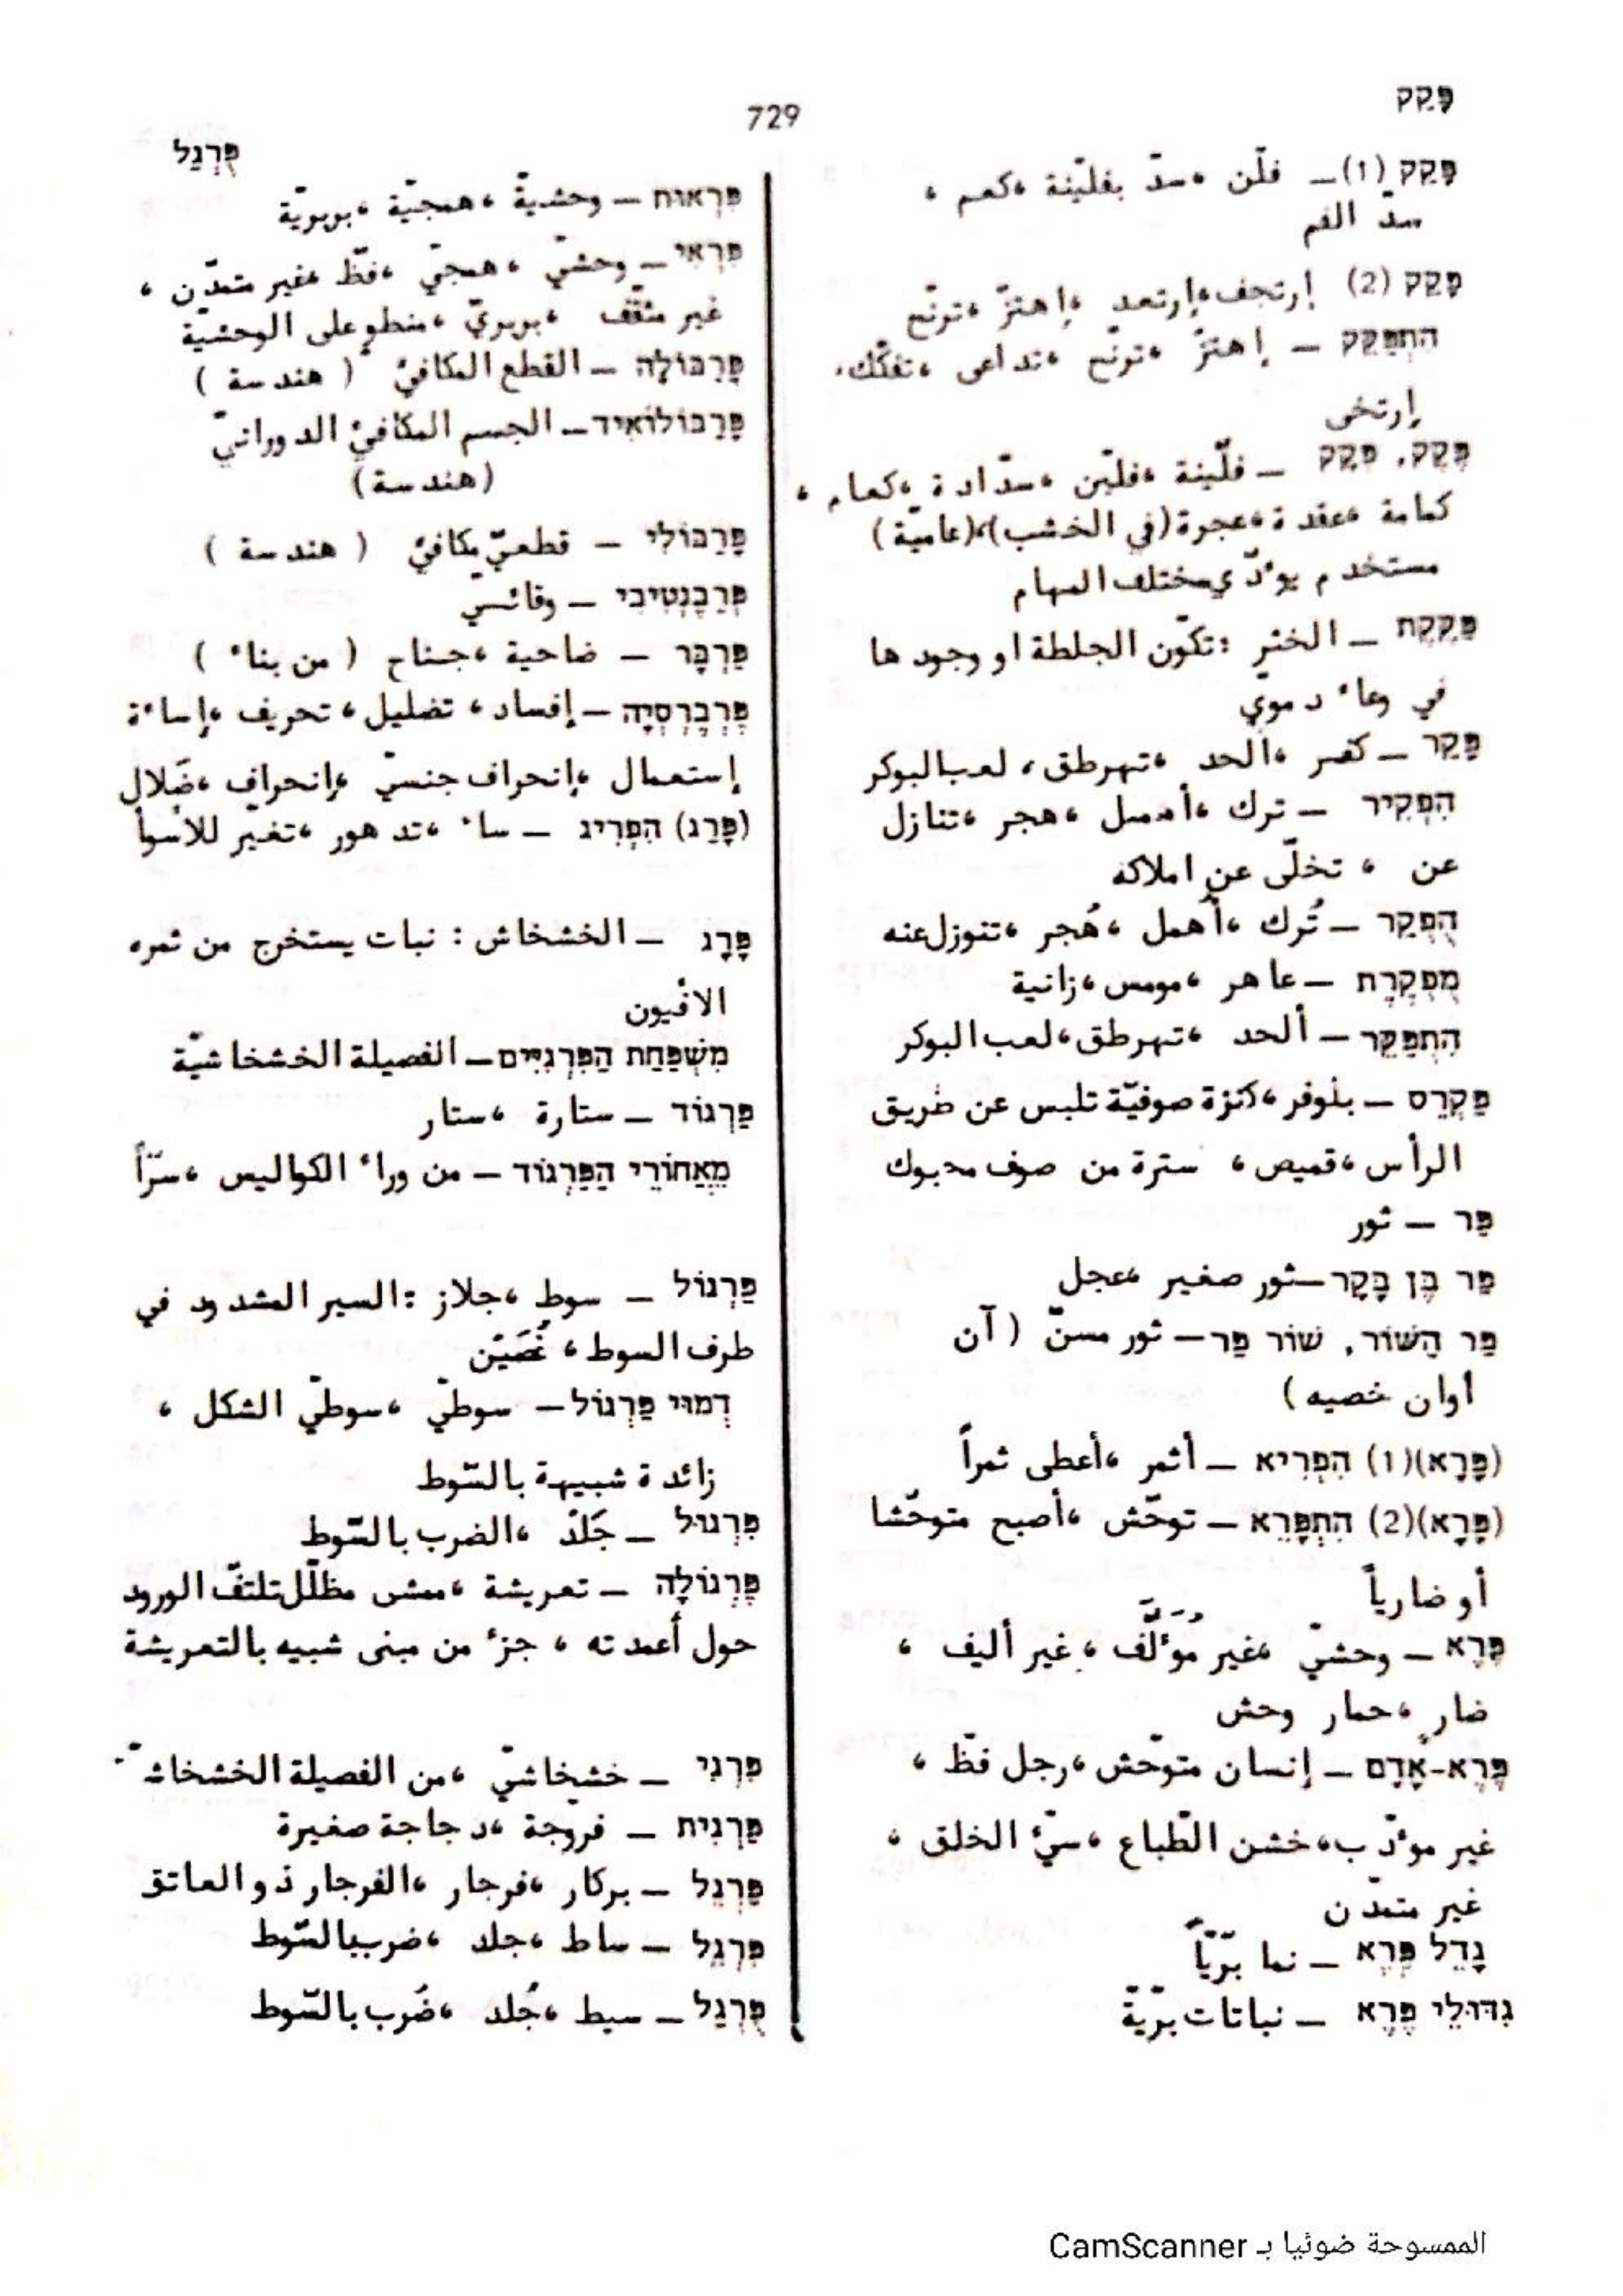 פָּקַק
729
פֻּרְגַל
פָּקַק (1)ــ فلّن ،سدّ بفلّينة ،كعم ،
سدّ الفم
פָּקַק (2) إرتجف،إرتعد ،إهتزّ ،ترنّح
הִתְפַּקֵק ــ إهتزّ ،ترنّح ،تداعى ،تفكّك،
إرتخى
פְּקָק, פֶּקֶק ــ فلّينة ،فلّين ،سدّادة ،كعام ،
كمامة ،عقدة ،عجرة (في الخشب)،(عاميّة)
مستخدم يؤدّي مختلف المهام
פַּקֶּקֶת ــ الخثر :تكوّن الجلطة او وجودها
في وعاء دموي
פָּקַר ــ كفر ،الحد ،تهرطق، لعب البوكر
הִפְקִיר ــ ترك ،أهمل ،هجر ،تنازل
عن ، تخلّى عن املاكه
הֻפְקַר ــ تُرك ،أُهمل ،هُجر ،تنوزل عنه
מֻפְקֶרֶת ــ عاهر ،مومس ،زانية
הִתְפַּקֵּר ــ ألحد ،تهرطق،لعب البوكر
פַּקְרֵס ــ بلوفر ،كنزة صوفيّة تلبس عن طريق
الرأس ،قميص ، سترة من صوف محبوك
פַּר ــ ثور
פַּר בֶּן בָּקָר ــ ثور صغير ،عجل
פַּר הַשּׁוֹר, שׁוֹר פַּר ــ ثور مسنّ (آن
أوان خصيه)
(פָּרָא)(1) הִפְרִיא ــ أثمر ،أعطى ثمراً
(פָּרָא)(2) הִתְפָּרֵא ــ توحّش ،أصبح متوحّشا
أو ضارياً
פֶּרֶא ــ وحشيّ ،غير مؤلّف ، غير أليف ،
ضار ،حمار وحش
פֶּרֶא-אָדָם ــ إنسان متوحّش ،رجل فظّ ،
غير مؤدّب، خشن الطّباع ،سيّئ الخلق ،
غير متمدّن
גָּדֵל פֶּרֶא ــ نما برّيّاً
גִּדּוּלֵי פֶּרֶא ــ نباتات برّيّة
פִּרְאוּת ــ وحشيةّ ،همجيّة ،بربريّة
פִּרְאִי ــ وحشيّ ،همجيّ ،فظّ ،غير متمدّن ،
غير مثقّف ،بربريّ ،منطو على الوحشيّة
פָּרַבּוֹלָה ــ القطع المكافئ (هندسة)
פָּרַבּוֹלוֹאִיד ــ الجسم المكافئ الدورانيّ
(هندسة)
פָּרַבּוֹלִי ــ قطعيّ مكافئ (هندسة)
פְּרֵבֶנְטִיבִי ــ وقائسيّ
פַּרְבָּר ــ ضاحية ،جناح (من بناء)
פֶּרְבֶרְסְיָה ــ إفساد ، تضليل ، تحريف ،إساءة
إستعمال ،إنحراف جنسيّ ،إنحراف ،ضَلال
(פָּרַג) הִפְרִיג ــ ساء ،تدهور ،تغيّر للأسوأ
פָּרָג ــ الخشخاش : نبات يستخرج من ثمره
الافيون
מִשְׁפַּחַת הַפִּרְגִּיִּים ــ الفصيلة الخشخاشيّة
פַּרְגוֹד ــ ستارة ،ستار
מֵאֲחוֹרֵי הַפַּרְגּוֹד ــ من وراء الكواليس ،سرّاً
פַּרְגּוֹל ــ سوط ،جلاز :السير المشدود في
طرف السوط ، غُصَيْن
דְמוּי פַּרְגּוֹל ــ سوطيّ ،سوطيّ الشكل ،
زائدة شبيهة بالسّوط
פִּרְגּוּל ــ جَلْد ،الضرب بالسّوط
פֶּרְגּוֹלָה ــ تعريشة ،ممشى مظلّل تلتفّ الورود
حول أعمدته ، جزء من مبنى شبيه بالتعريشة
פִּרְגִי ــ خشخاشيّ ،من الفصيلة الخشخاشـ
פַּרְגִית ــ فرّوجة ،دجاجة صغيرة
פַּרְגֵל ــ بركار ،فرجار ،الفرجار ذو العاتق
פִּרְגֵּל ــ ساط ،جلد ،ضرب بالسّوط
פֻּרְגַל ــ سيط ،جُلد ،ضُرب بالسّوط
الممسوحة ضوئيا بـ CamScanner